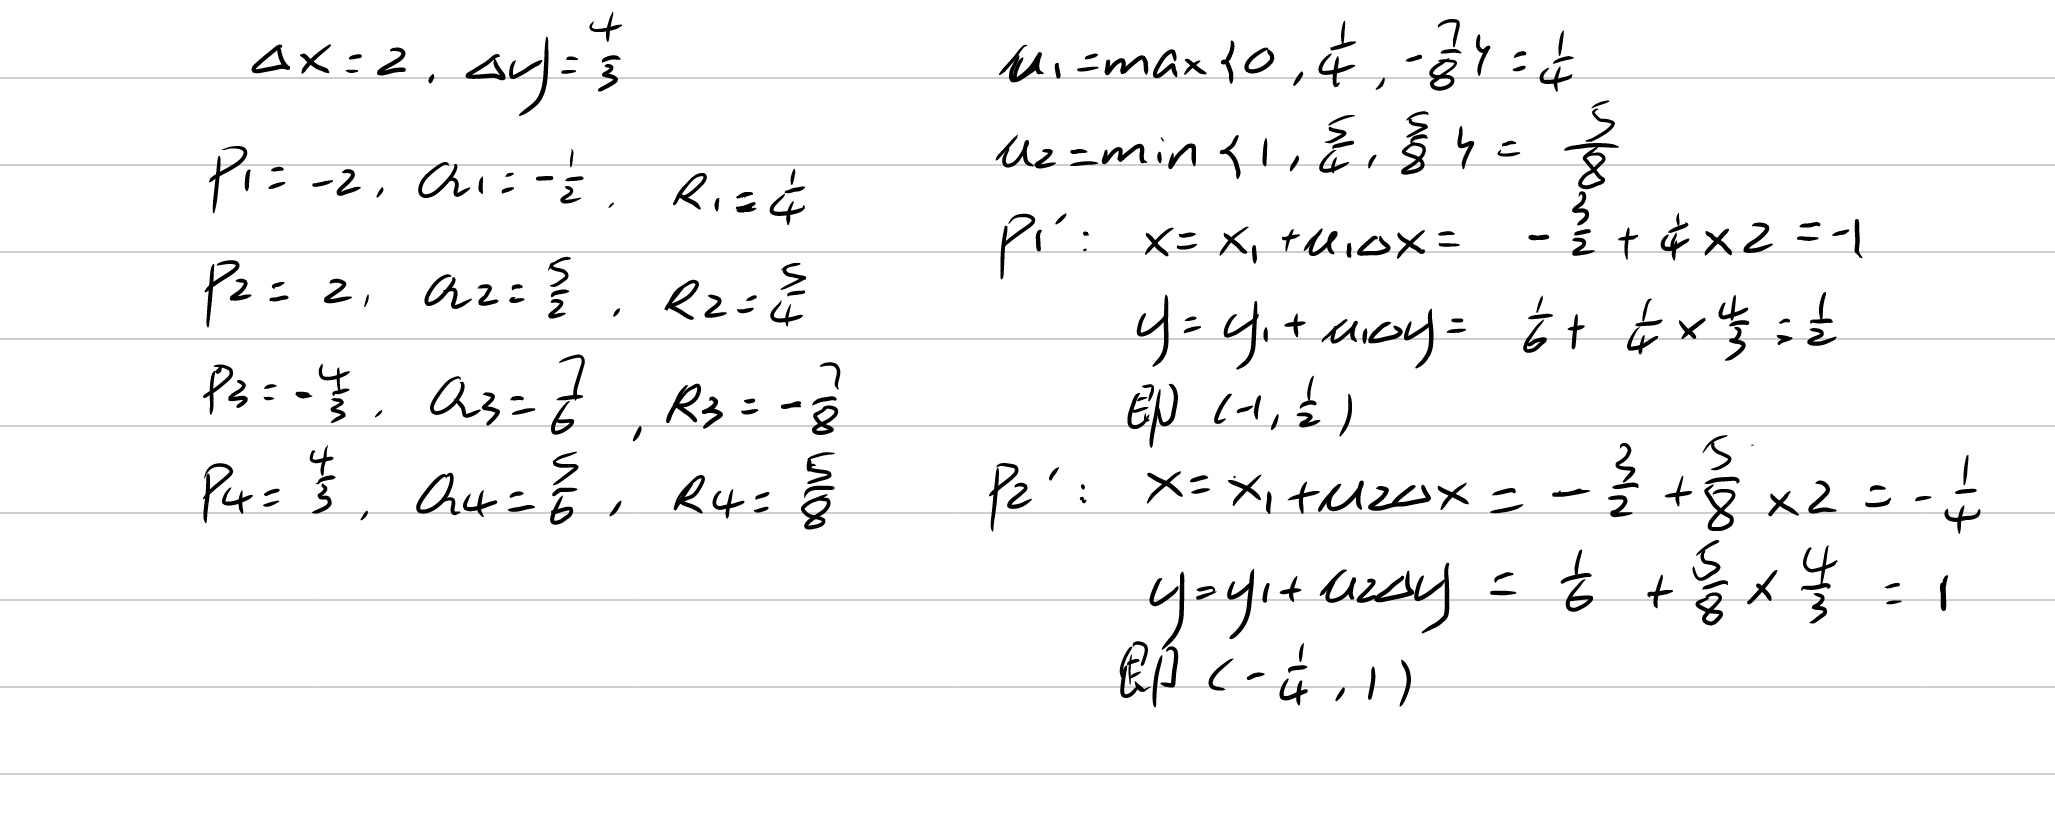 Δx = 2, Δy = 4/3
P1 = -2, Q1 = -1/2, R1 = 1/4
P2 = 2, Q2 = 5/2, R2 = 5/4
P3 = -4/3, Q3 = 7/6, R3 = -7/8
P4 = 4/3, Q4 = 5/6, R4 = 5/8
u1 = max{0, 1/4, -7/8} = 1/4
u2 = min{1, 5/4, 5/8} = 5/8
P1′: x = x1 + u1Δx = -3/2 + 1/4 × 2 = -1
y = y1 + u1Δy = 1/6 + 1/4 × 4/3 = 1/2
即 (-1, 1/2)
P2′: x = x1 + u2Δx = -3/2 + 5/8 × 2 = -1/4
y = y1 + u2Δy = 1/6 + 5/8 × 4/3 = 1
即 (-1/4, 1)